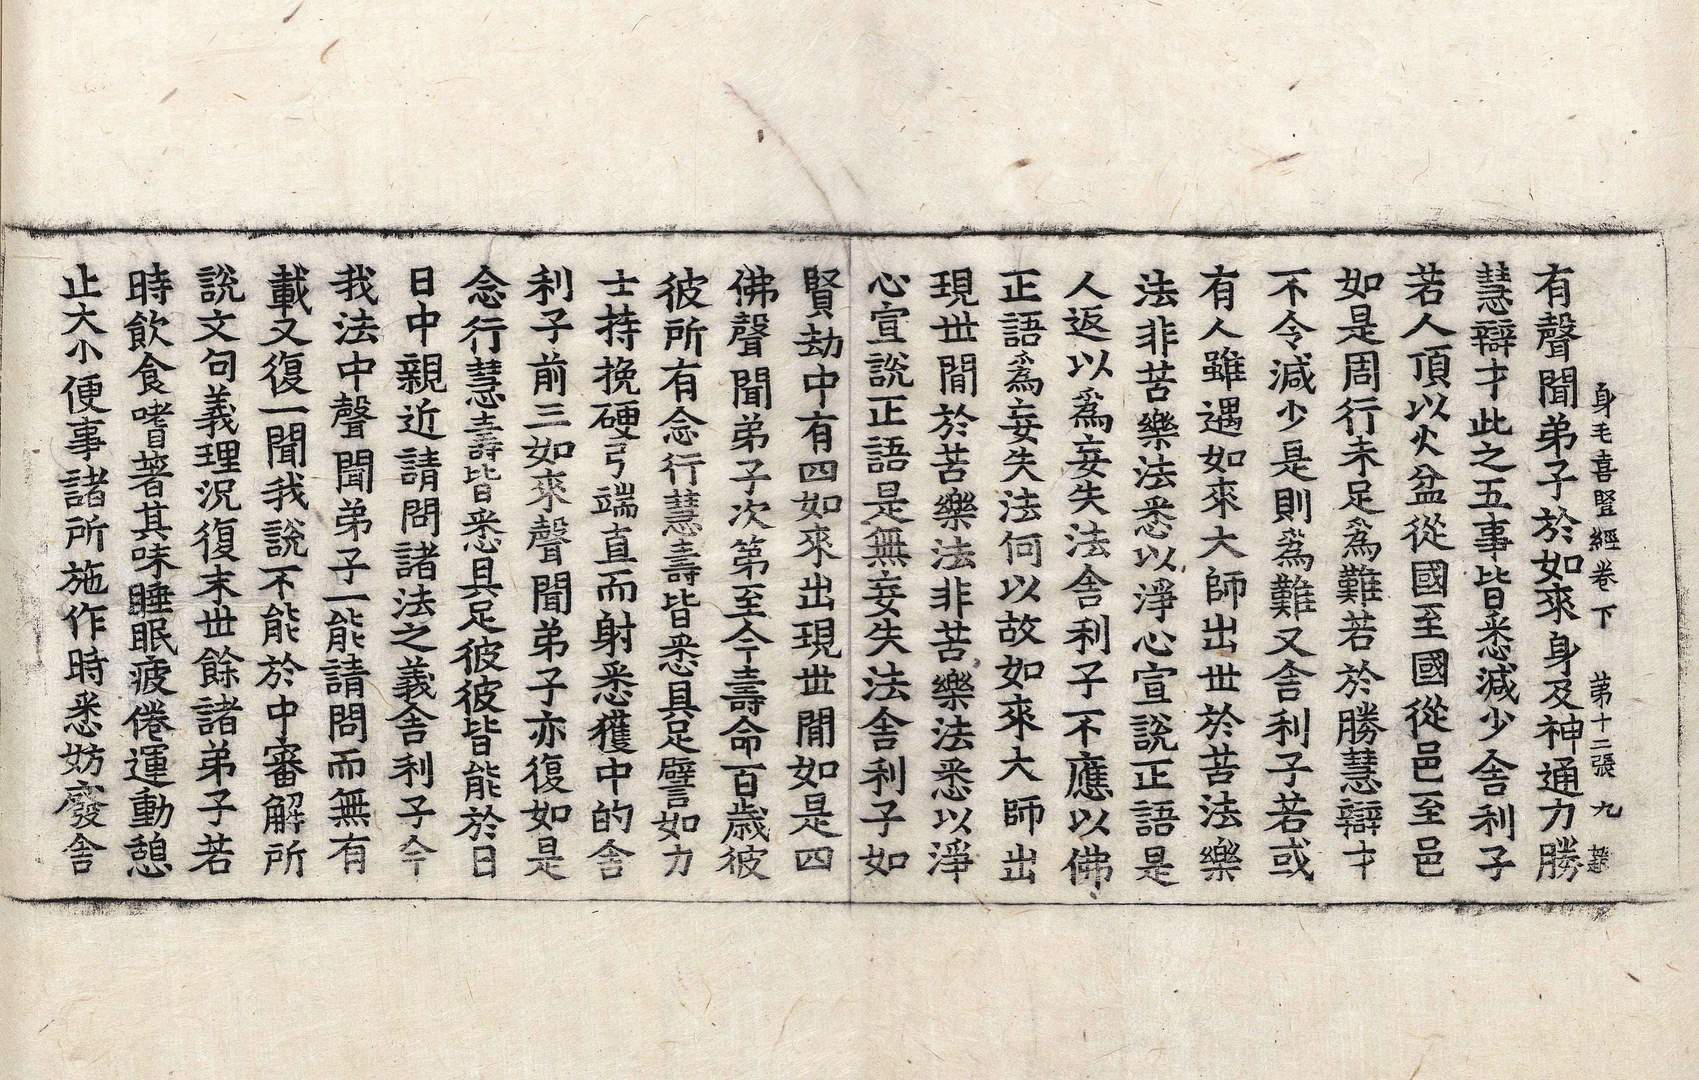 身毛喜竪經卷下　第十二張　九
有聲聞弟子於如來身及神通力勝
慧辯才此之五事皆悉減少舍利子
若人頂以火盆從國至國從邑至邑
如是周行未足爲難若於勝慧辯才
不令減少是則爲難又舍利子若或
有人雖遇如來大師出世於苦法樂
法非苦樂法悉以淨心宣說正語是
人返以爲妄失法舍利子不應以佛
正語爲妄失法何以故如來大師出
現世間於苦樂法非苦樂法悉以淨
心宣說正語是無妄失法舍利子如
賢劫中有四如來出現世間如是四
佛聲聞弟子次第至今壽命百歲彼
彼所有念行慧壽皆悉具足譬如力
士持挽硬弓端直而射悉獲中的舍
利子前三如來聲聞弟子亦復如是
念行慧壽皆悉具足彼彼皆能於日
日中親近請問諸法之義舍利子今
我法中聲聞弟子一能請問而無有
載又復一聞我說不能於中審解所
說文句義理況復末世餘諸弟子若
時飲食嗜著其味睡眠疲倦運動憩
止大小便事諸所施作時悉妨廢舍